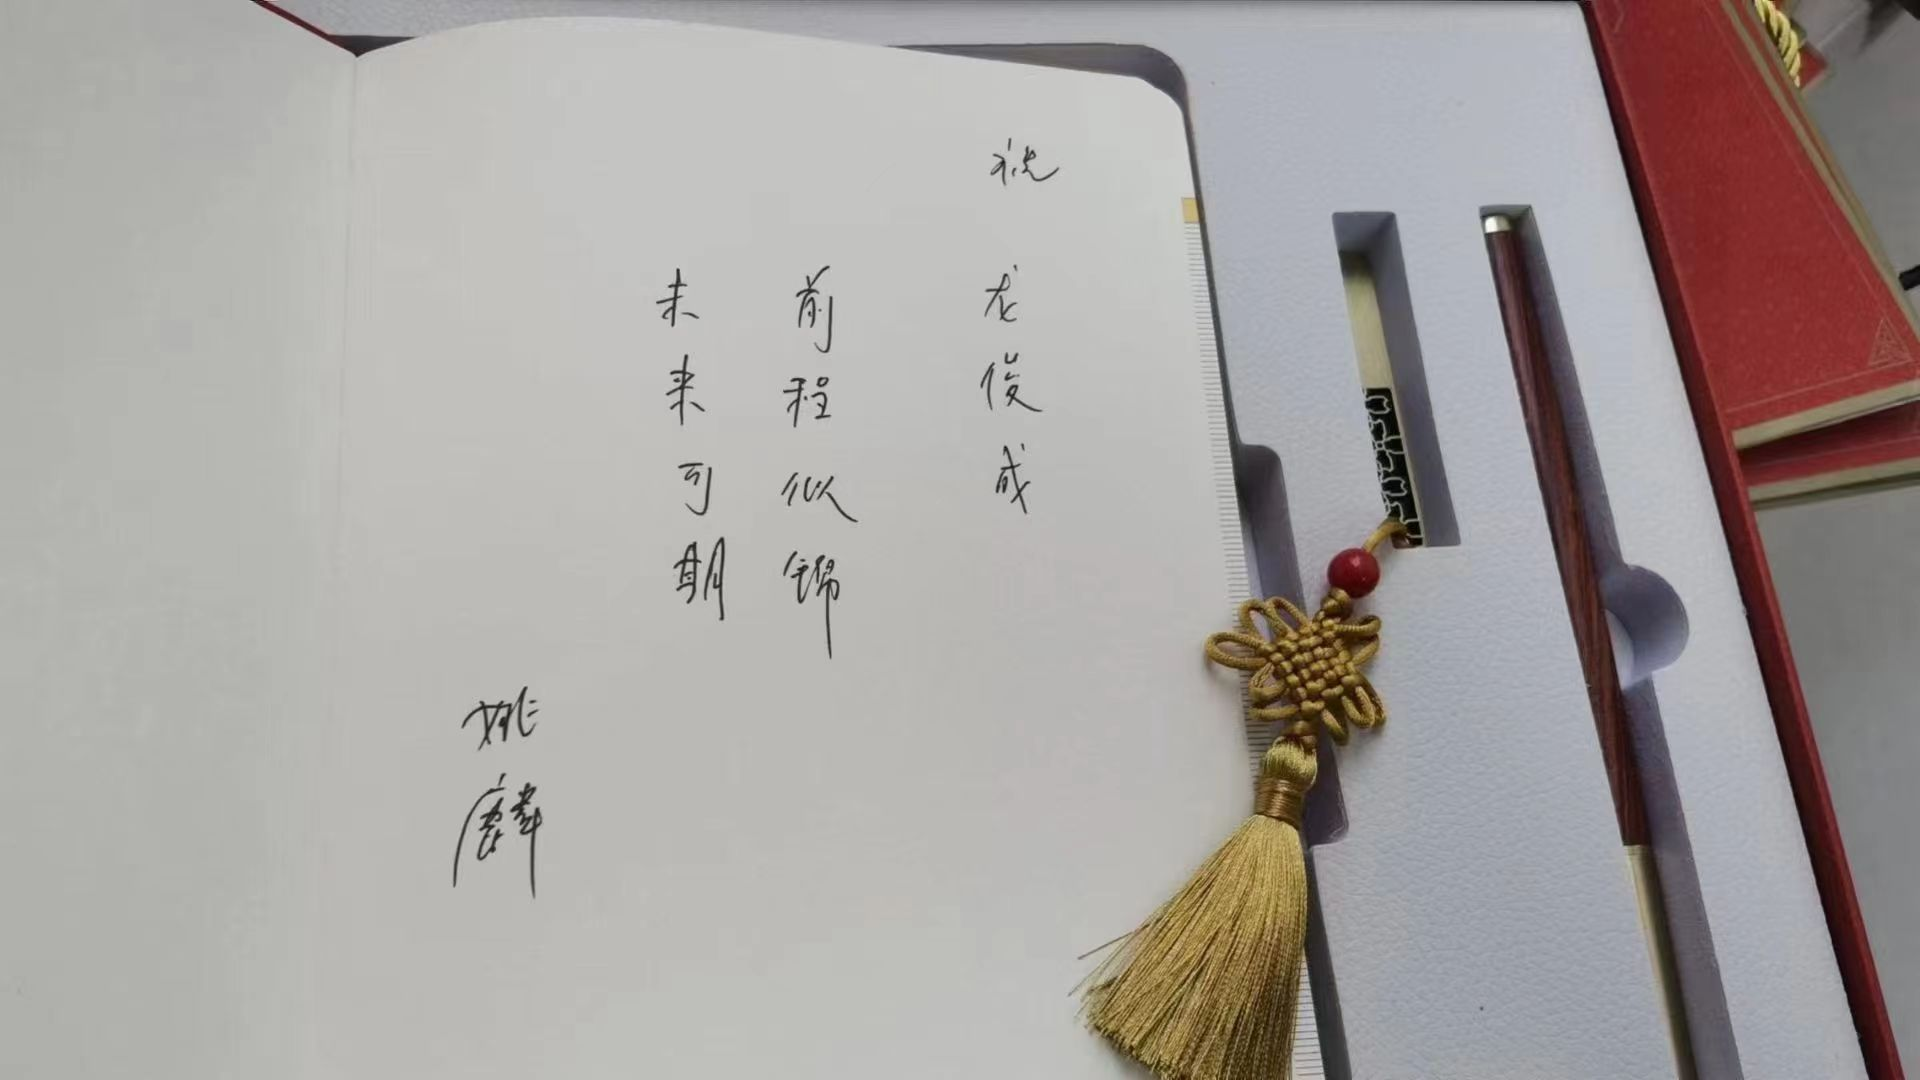 祝
龙俊成
前程似锦
未来可期
姚麟